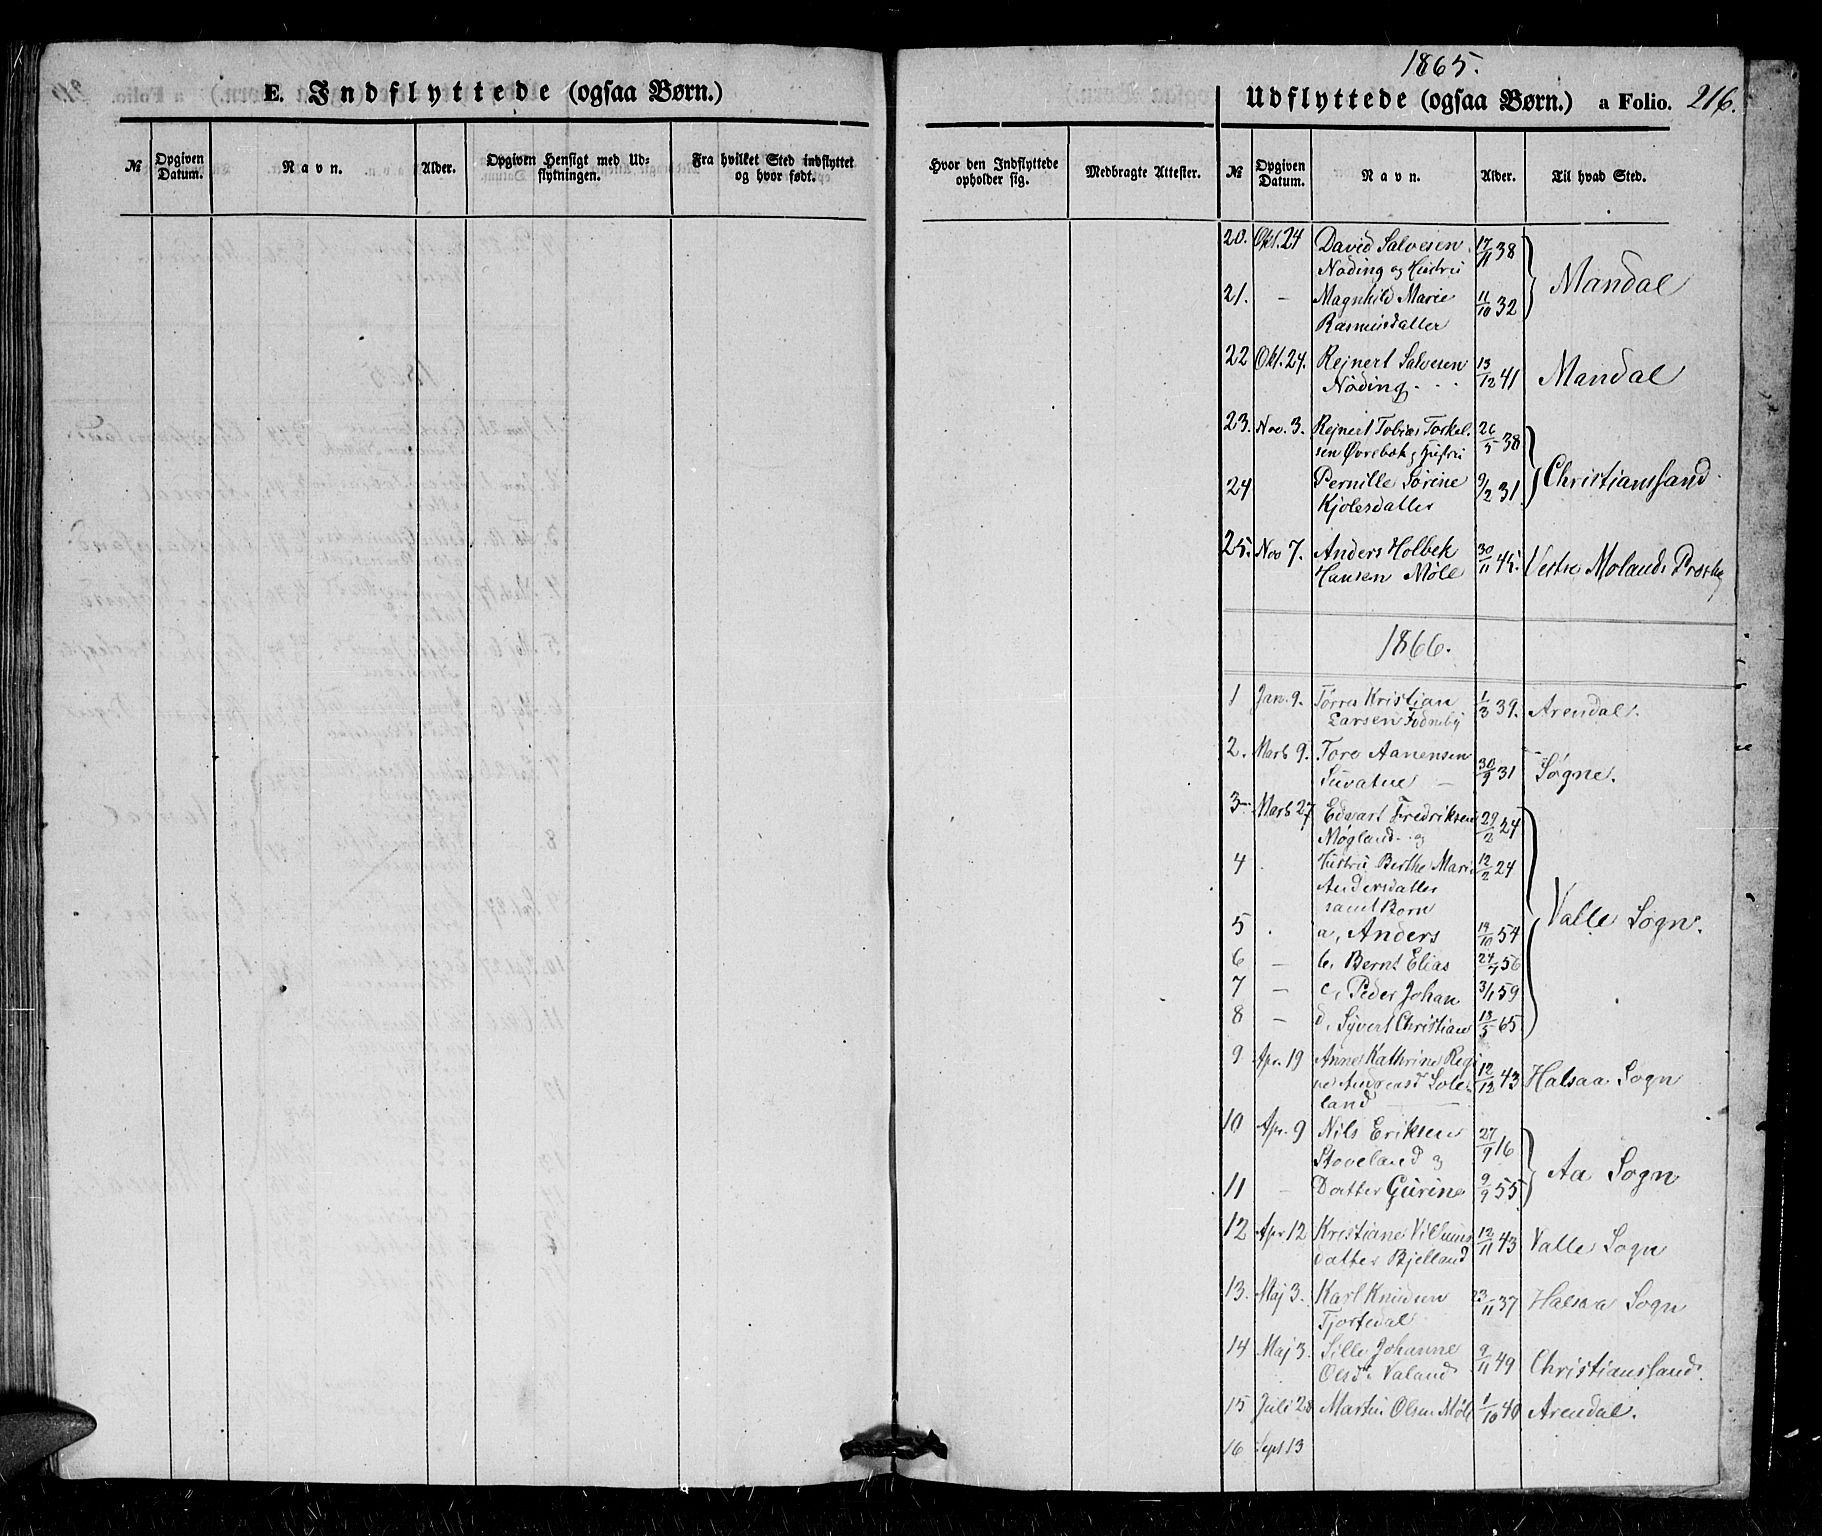 E. Indflyttede (ogsaa Børn.)
№
Opgiven Datum.
Navn.
Alder.
Opgiven Hensigt med Ud=
flytningen.
Fra hvilket Sted indflyttet
og hvor født.
1865.
Udflyttede (ogsaa Børn.) a Folio. 216.
Hvor den Indflyttede
opholder sig.
Medbragte Attester.
№
Opgiven Datum.
Navn.
Alder.
Til hvad Sted.
20. Okt. 24 David Salvesen 17/11 38
Nøding og Hustru
Mandal
21. – Magnhild Marie 11/10 32
Rasmusdatter
22 Okt. 24. Rejnert Salvesen 13/12 41 Mandal
Nøding
23. Nov. 3. Rejnert Tobias Torkel- 26/5 38
sen Øvrebøk og Hustru
Christianssand
24 Pernille Sørine 9/2 31
Kjølesdatter
25. Nov 7. Anders Holbek 30/11 45. Vestre Molands Præstg
Hansen Møll
1866.
1 Jan. 9. Tørres Kristian 1/3 39. Arendal.
Larsen
2. Marts 9. Tore Aanensen 30/9 31 Søgne.
3 Marts 27 Edvart Fredriksen 29/2 24
Møgland og
4 Hustru Berthe Marie 12/2 24
Andersdatter
samt Børn
Valle Sogn.
5 a, Anders 14/10 54
6 – b, Bernt Elias 24/7 56
7 – c, Peder Johan 3/1 59
8 – d, Syvert Christian 13/5 65
9 Apr. 19 Anne Kathrine Regi 12/12 43 Halsaa Sogn
ne Andreasd
land
10 Apr. 9 Nils Eriksen 27/9 16
Støveland og
Aa Sogn
11 – Datter Gurine 9/9 55
12 Apr 12 Kristiane Villums 12/11 43 Valle Sogn
datter Bjelland
13. Maj 3. Karl Knudsen 23/11 37 Halsaa Sogn
Tjostedal
14 Maj 3. Sille Johanne 9/11 49 Christianssand.
Olsdt. Valand
15 Juli 28 Martin Olsen Møll 1/10 40 Arendal.
16 Sept 13